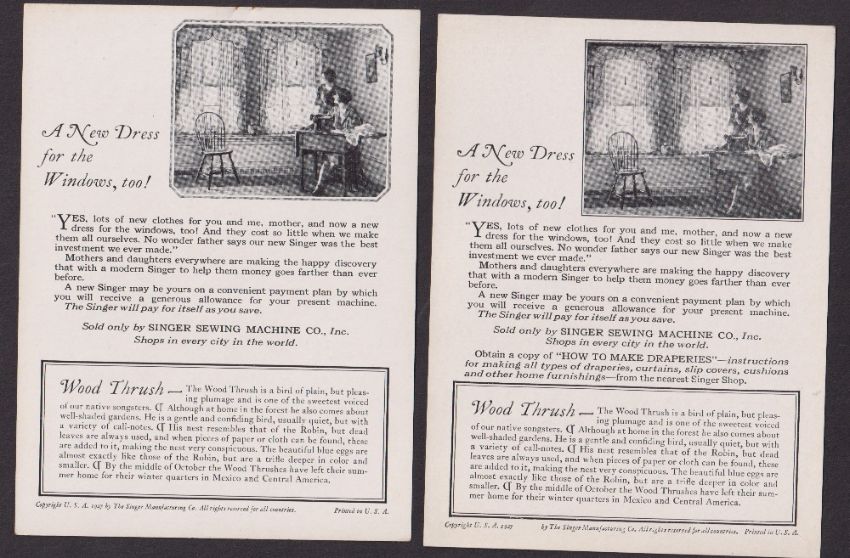 A New Dress
for the
Windows, too!
"YES, lots of new clothes for you and me, mother, and now a new
dress for the windows, too! And they cost so little when we make
them all ourselves. No wonder father says our new Singer was the best
investment we ever made."
Mothers and daughters everywhere are making the happy discovery
that with a modern Singer to help them money goes farther than ever
before.
A new Singer may be yours on a convenient payment plan by which
you will receive a generous allowance for your present machine.
The Singer will pay for itself as you save.
Sold only by SINGER SEWING MACHINE CO., Inc.
Shops in every city in the world.
Wood Thrush — The Wood Thrush is a bird of plain, but pleas-
ing plumage and is one of the sweetest voiced
of our native songsters. ¶ Although at home in the forest he also comes about
well-shaded gardens. He is a gentle and confiding bird, usually quiet, but with
a variety of call-notes. ¶ His nest resembles that of the Robin, but dead
leaves are always used, and when pieces of paper or cloth can be found, these
are added to it, making the nest very conspicuous. The beautiful blue eggs are
almost exactly like those of the Robin, but are a trifle deeper in color and
smaller. ¶ By the middle of October the Wood Thrushes have left their sum-
mer home for their winter quarters in Mexico and Central America.
Copyright U. S. A. 1927 by The Singer Manufacturing Co. All rights reserved for all countries. Printed in U. S. A.
A New Dress
for the
Windows, too!
"YES, lots of new clothes for you and me, mother, and now a new
dress for the windows, too! And they cost so little when we make
them all ourselves. No wonder father says our new Singer was the best
investment we ever made."
Mothers and daughters everywhere are making the happy discovery
that with a modern Singer to help them money goes farther than ever
before.
A new Singer may be yours on a convenient payment plan by which
you will receive a generous allowance for your present machine.
The Singer will pay for itself as you save.
Sold only by SINGER SEWING MACHINE CO., Inc.
Shops in every city in the world.
Obtain a copy of "HOW TO MAKE DRAPERIES"—instructions
for making all types of draperies, curtains, slip covers, cushions
and other home furnishings—from the nearest Singer Shop.
Wood Thrush — The Wood Thrush is a bird of plain, but pleas-
ing plumage and is one of the sweetest voiced
of our native songsters. ¶ Although at home in the forest he also comes about
well-shaded gardens. He is a gentle and confiding bird, usually quiet, but with
a variety of call-notes. ¶ His nest resembles that of the Robin, but dead
leaves are always used, and when pieces of paper or cloth can be found, these
are added to it, making the nest very conspicuous. The beautiful blue eggs are
almost exactly like those of the Robin, but are a trifle deeper in color and
smaller. ¶ By the middle of October the Wood Thrushes have left their sum-
mer home for their winter quarters in Mexico and Central America.
Copyright U. S. A. 1927 by The Singer Manufacturing Co. All rights reserved for all countries. Printed in U. S. A.